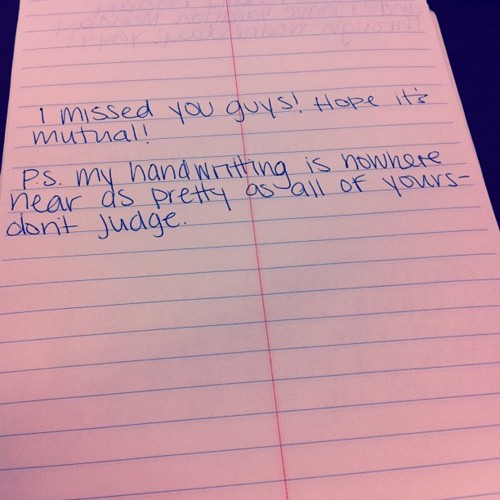 I missed you guys! Hope it's
mutual!
P.S. my handwritting is nowhere
near as pretty as all of yours-
don't judge.